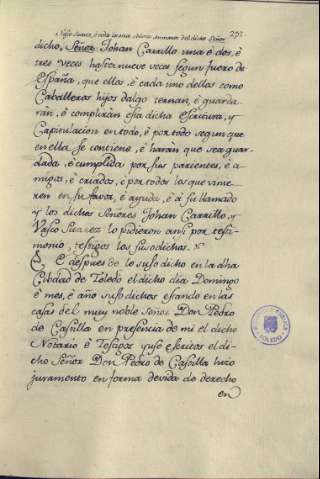 Vasco Suarez, é cada uno en manos del dicho Señor 292
dicho, Señor Johan Carrillo una é dos, é
tres veces hasta nueve veces segun fuero de
España, que ellos, é cada uno dellos como
Caballeros hijos dalgo ternan, é guarda
ran, é compliran esta dicha escritura, y
Capitulacion en todo, é por todo segun que
en ella se contiene, é haran que sea guar-
dada, é cumplida por sus parientes, é a-
migos, é criados, é por todos los que vinie
ren en su favor, é ayuda, é á su llamado
y los dichos Señores Johan Carrillo, y
Vasco Suarez lo pidieron ansi por testi
monio, testigos los susodichos.
E despues de lo susodicho en la dha
Cibdad de Toledo el dicho dia Domingo
é mes, é año susodichos estando en las
casas del muy noble Señor Don Pedro
de Castilla en presencia de mi el dicho
Notario é Testigos yuso escritos el di-
cho Señor Don Pedro de Castilla hizo
juramento en forma devida de derecho
en
PUBLICA
TOLEDO